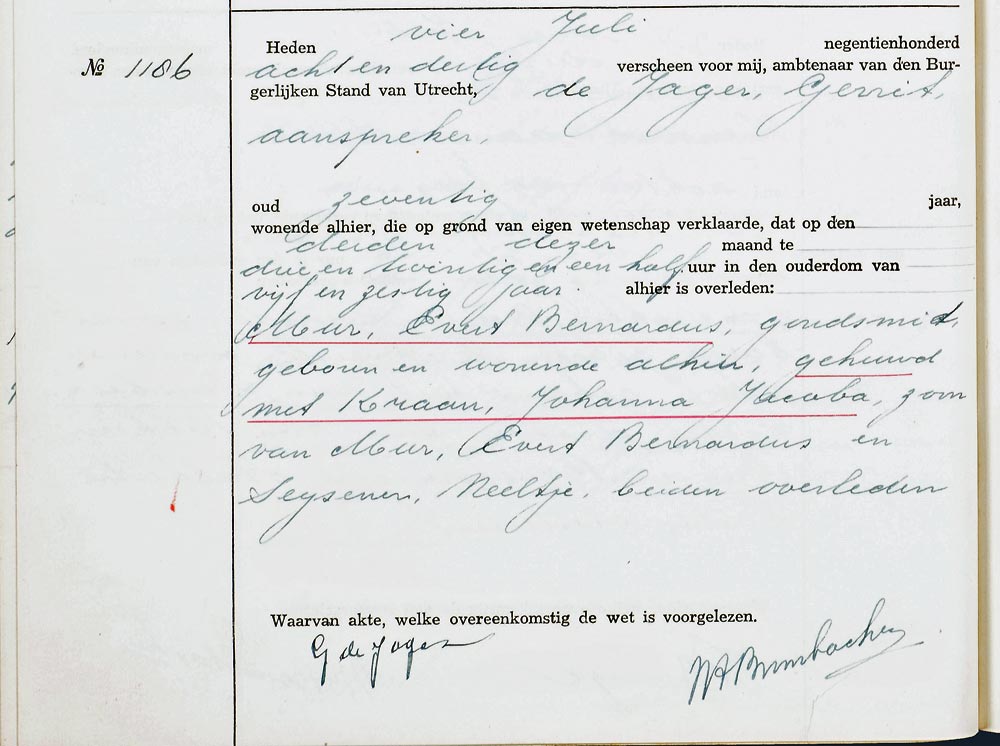 № 1186
Heden vier Juli negentienhonderd
acht en dertig verscheen voor mij, ambtenaar van den Bur-
gerlijken Stand van Utrecht, de Jager, Gerrit,
aanspreker,
oud zeventig jaar,
wonende alhier, die op grond van eigen wetenschap verklaarde, dat op den
derden dezer maand te
drie en twintig en een half uur in den ouderdom van
vijf en zestig jaar alhier is overleden:
Mur, Evert Bernardus, goudsmid,
geboren en wonende alhier, gehuwd
met Kraan, Johanna Jacoba, zoon
van Mur, Evert Bernardus en
Seysener, Neeltje, beiden overleden
Waarvan akte, welke overeenkomstig de wet is voorgelezen.
G de Jager